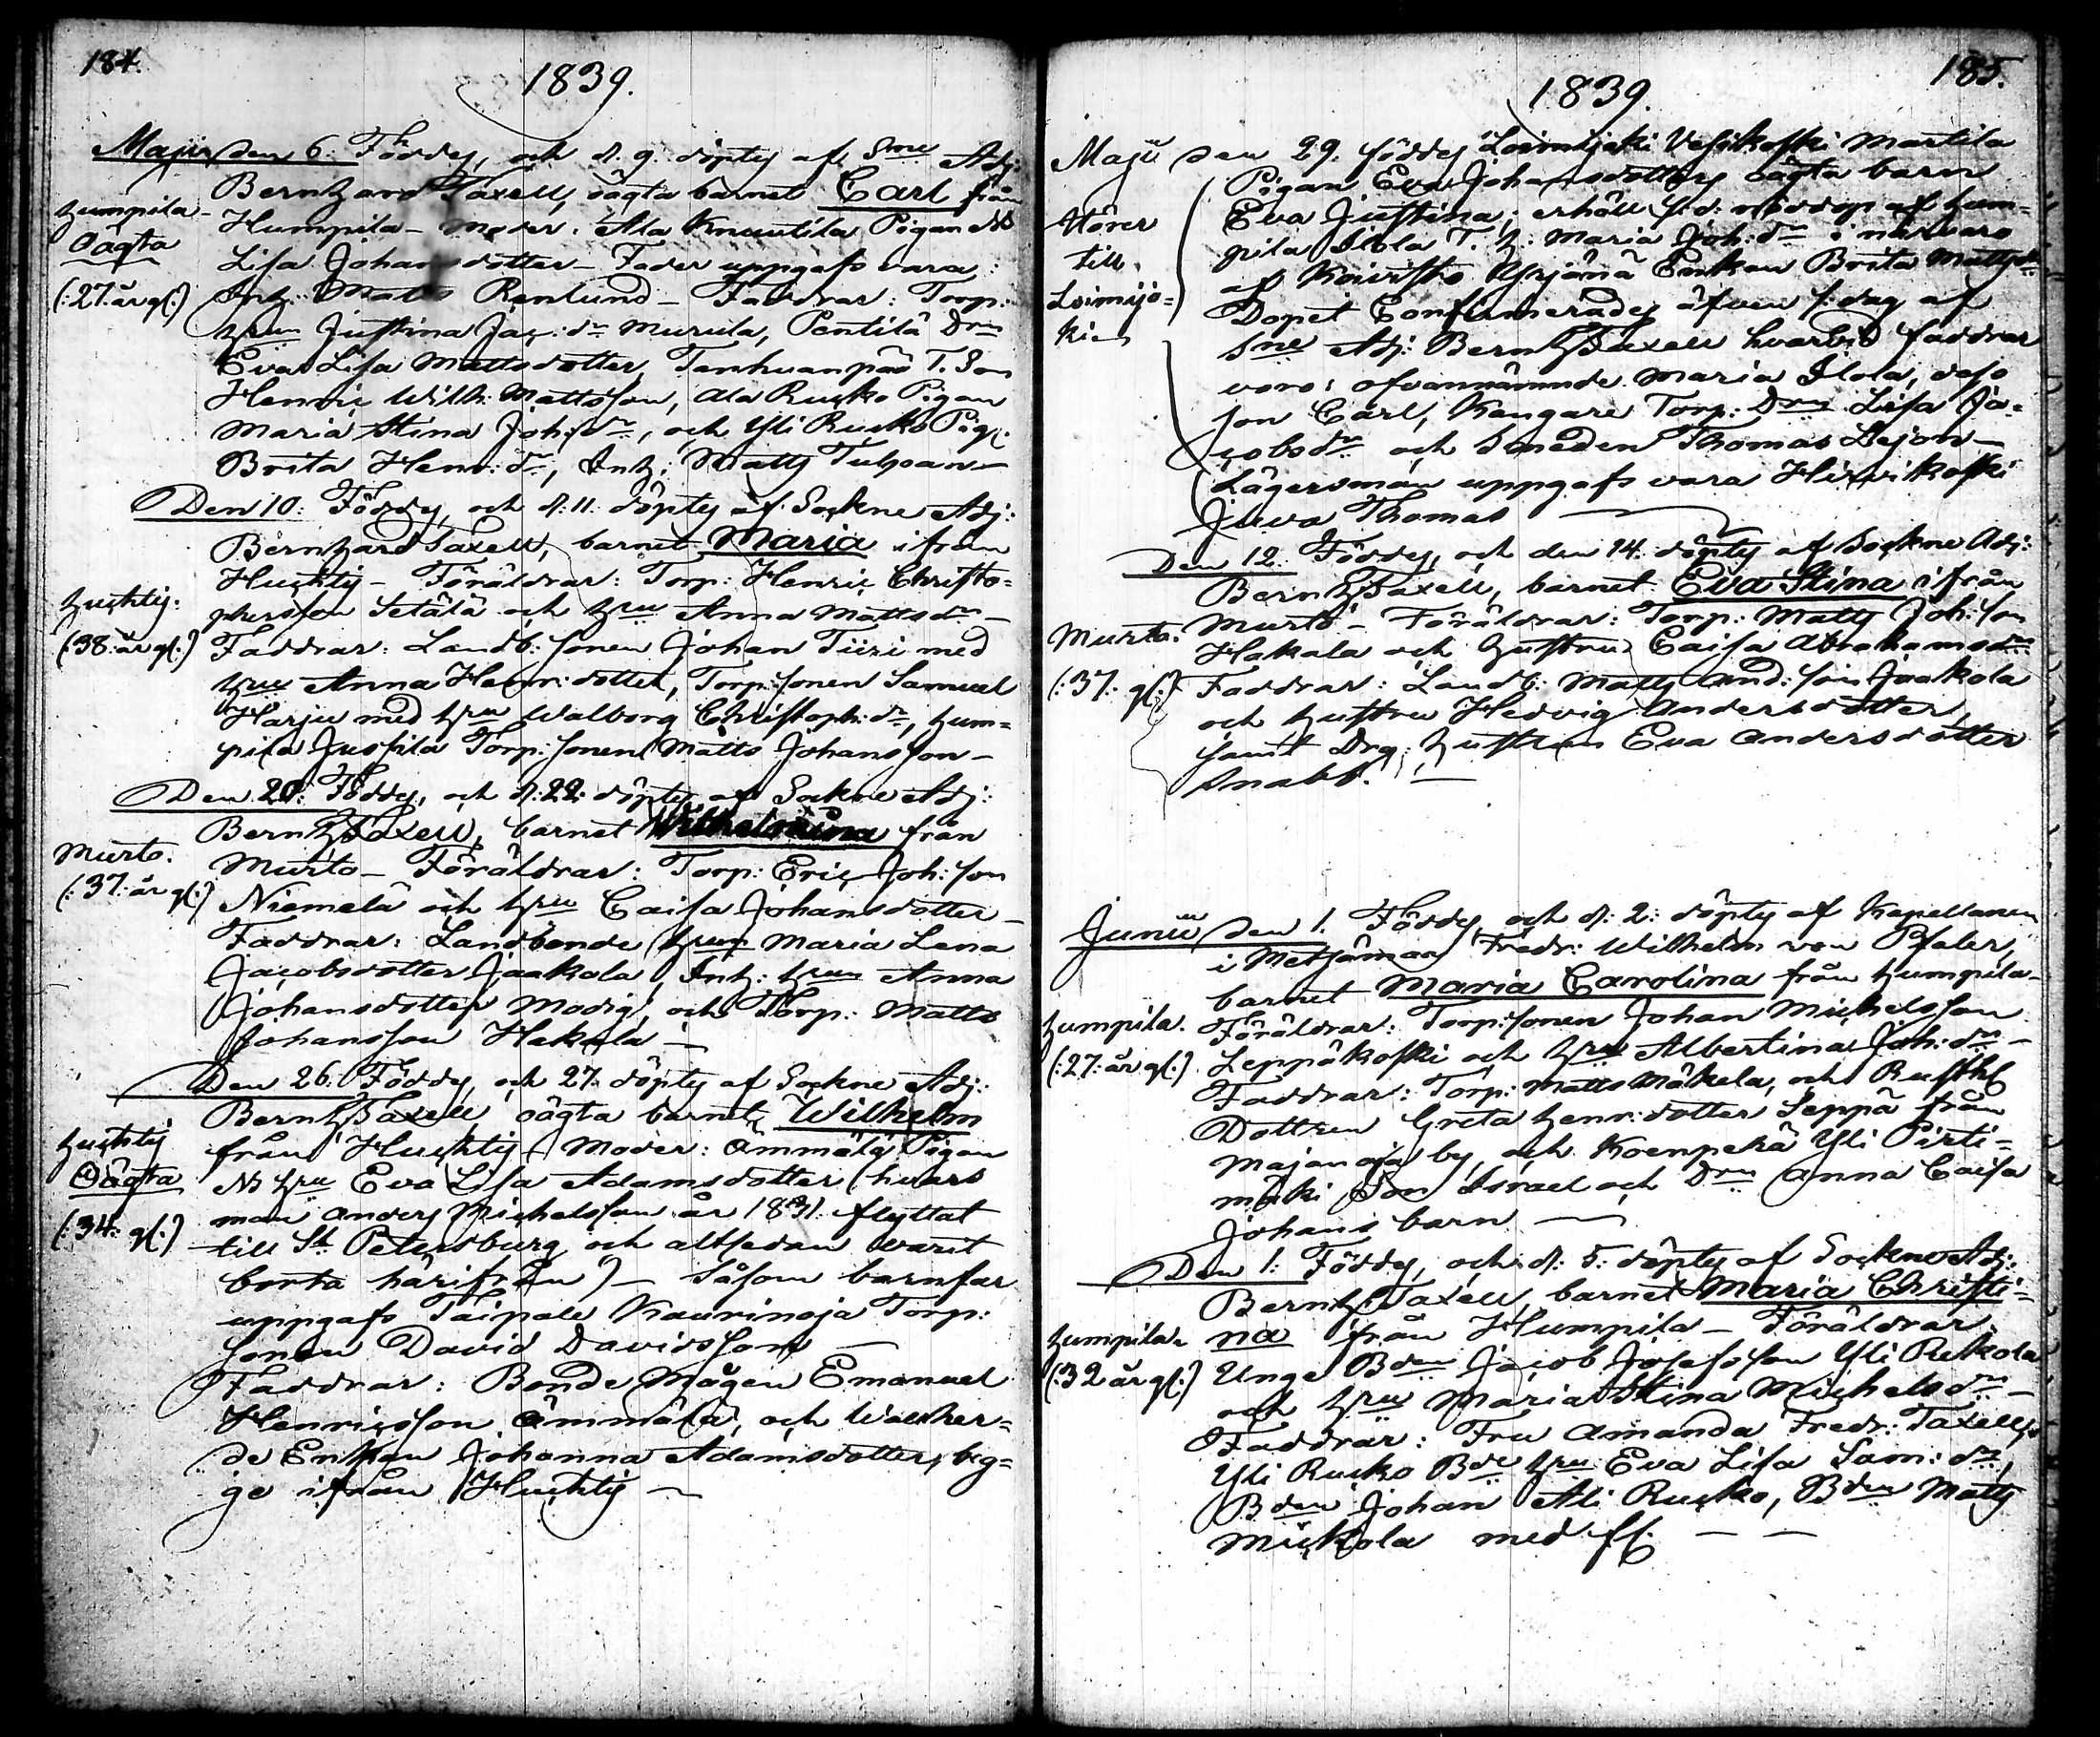 184.
1839.
Maji den 6. Föddes, och d. 9. döptes af Sne Adj:
Bernhard Taxell, oägta barnet Carl från
Humpila - Moder: Ala Knuutila Pigan
Lisa Johansdotter - Fader uppgafs vara:
Inh: Matts Renlund - Faddrar: Torp:
hru Justina Jac:dr Murula, Pentilä Drn
Eva Lisa Mattsdotter, Tanhuanpää T. Son
Henric Wilh: Mattsson, Ala Rusko Pigan
Maria Stina Joh:dr, och Yli Rusko Pig:
Brita Henr:dr, Inh: Matts Tulpan -
Humpila -
Oägta
(:27. år gl:)
Den 10. Föddes, och d: 11. döptes af Sockne Adj:
Bernhard Taxell, barnet Maria ifrån
Huchtis - Föräldrar: Torp: Henric Christo=
phersson Setälä och hru Anna Mattsdr -
Faddrar: Landb: sonen Johan Tiiri med
hru Anna Henr:dotter, Torp:sonen Samuel
Harju med hru Walborg Christoph:dr, Hum=
pila Jussila Torp:sonen Matts Johansson -
Huchtis:
(:38. år gl:)
Den 20: Föddes, och d: 22. döptes af Sockne Adj:
Bernh Taxell, barnet Wilhelmina från
Murto - Föräldrar: Torp: Eric Joh:son
Niemelä och hru Caisa Johansdotter -
Faddrar: Landbonde hrun Maria Lena
Jacobsdotter Jaakola, Inh: hrun Anna
Johansdotter Modig, och Torp: Matts
Johansson Hakala -
Murto.
(:37. år gl:)
Den 26. Föddes, och 27. döptes af Sockne Adj:
Bernh Taxell, oägta barnet Wilhelm
från Huchtis - Moder: Ämmälä Pigan
hru Eva Lisa Adamsdotter (hvars
man Anders Michelsson år 1831. flyttat
till St Petersburg och altsedan varit
borta härifrån) - Såsom barnfar
uppgafs Taipale Kaurinoja Torp:
sonen David Davidsson -
Faddrar: Bonde Mågen Emanuel
Henricsson Ämmälä, och Wacker=
de Enkan Johanna Adamsdotter, beg=
ge ifrån Huchtis -
Huchtis
Oägta
(:34. gl:)
185.
1839.
Maji den 29. föddes Loimijoki Vesikoski Martila
Pigan Eva Johansdotters oägta barn
Eva Justina; erhöll s.d. nöddop af Hum=
pila Ilola T. h: Maria Joh:dr i närvaro
af Koivisto Enkan Brita Mattsdr
Dopet Confirmerades äfven s. dag af
Sne Adj: Bernh Taxell hvarvid faddrar
voro: ofvannämnde Maria Ilola, dess
son Carl, Kangare Torp: Drn Lisa Ja=
cobsdr och Smeden Thomas Lejon -
Lägersman uppgafs vara Hirvikoski
Juva Thomas -
Hörer
till
Loimijo=
ki
Den 12. Föddes, och den 14. döptes af Sockne Adj:
Bernh Taxell, barnet Eva Stina ifrån
Murto - Föräldrar: Torp: Matts Joh:son
Hakala och hustru Caisa Abrahamsdr
Faddrar: Landb: Matts And:son Jaakola
och hustru Hedvig Andersdotter,
samt Drg: hustrun Eva Andersdotter
Snabb. -
Murto.
(:37. gl:)
Junii den 1. Föddes, och d: 2. döptes af Kapellanen
i Metsämaa Fredr: Wilhelm von Pfaler,
barnet Maria Carolina från Humpila -
Föräldrar: Torp:sonen Johan Michelsson
Leppäkoski och hru Albertina Joh:dr -
Faddrar: Torp: Matts Mäkelä, och Rusth
Dottren Greta Henr:dotter Seppä från
Majanoja by, och Koenperä Yli Pirti=
mäki Son Israel och Drn Anna Caisa
Johans barn -
Humpila.
(:27. år gl:)
Den 1: Föddes, och d: 5. döptes af Sockne Adj:
Bernh. Taxell, barnet Maria Christi=
na från Humpila - Föräldrar:
Unge Bden Jacob Josefsson Yli Rekola
och hru Maria Stina Michelsdr -
Faddrar: Fru Amanda Fredr: Taxell,
Yli Rusko Bde hru Eva Lisa Sam:dr,
Bden Johan Ali Rusko, Bden Matts
Mickola med fl. - -
Humpila
(:32 år gl:)